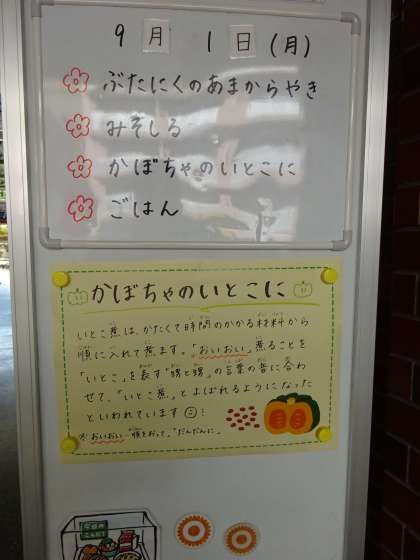 9月 1日(月)
ぶたにくのあまからやき
みそしる
かぼちゃのいとこに
ごはん
かぼちゃのいとこに
いとこ煮は、かたくて時間のかかる材料から
順に入れて煮ます。「おいおい」煮ることを
「いとこ」を表す「甥と甥」の言葉の音に合わ
せて、「いとこ煮」とよばれるようになった
といわれています！
※おいおい…順をおって。「だんだんに」
今日の
こんだて